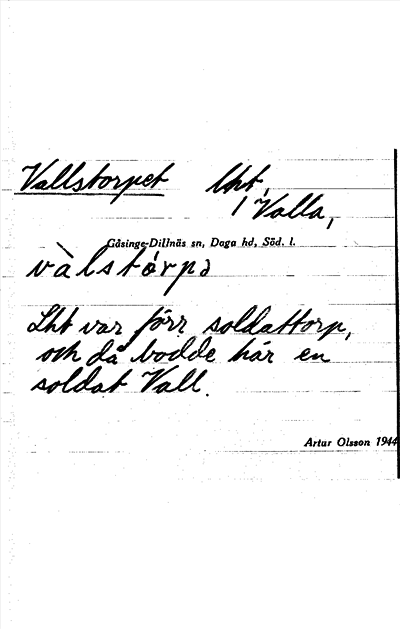 Vallstorpet lht,
i Valla,
Gåsinge-Dillnäs sn, Daga hd, Söd. l.
vàlstórpə
Lht var förr soldattorp,
och då bodde här en
soldat Vall.
Artur Olsson 1944